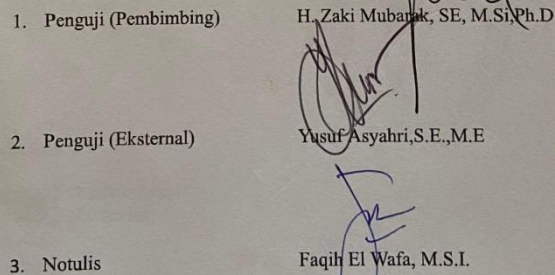 1. Penguji (Pembimbing) H. Zaki Mubarak, SE, M.Si,Ph.D
2. Penguji (Eksternal) Yusuf Asyahri,S.E.,M.E
3. Notulis Faqih El Wafa, M.S.I.